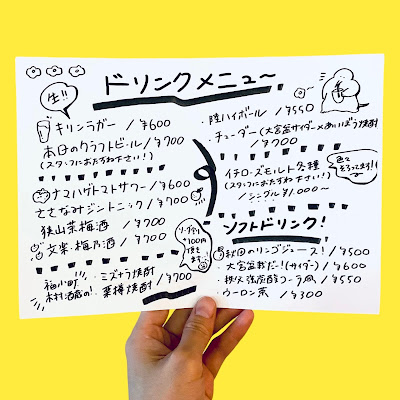 ドリンクメニュ〜
生!!
キリンラガー /¥600
本日のクラフトビール/¥700
(スタッフにおたずね下さい!)
ナマハゲトマトサワー/¥600
ささなみジントニック/¥700
狭山茶梅酒 /¥700
文楽 梅乃酒 /¥700
ソーダわり
+100円
福小町 ・ミズナラ焼酎
木村酒蔵の! ・栗樽焼酎 /¥700
・陸ハイボール /¥550
・チューダー(大宮盆サイダー×あいぼう焼酎
/¥700
イチローズモルト各種
(スタッフにおたずね下さい!)
/シングル¥1,000〜
色々
そろってます!
ソフトドリンク!
秋田のリンゴジュース! /¥500
・大宮盆栽だー!(サイダー) /¥600
・秩父強炭酸コーラ風 /¥550
・ウーロン茶 /¥300